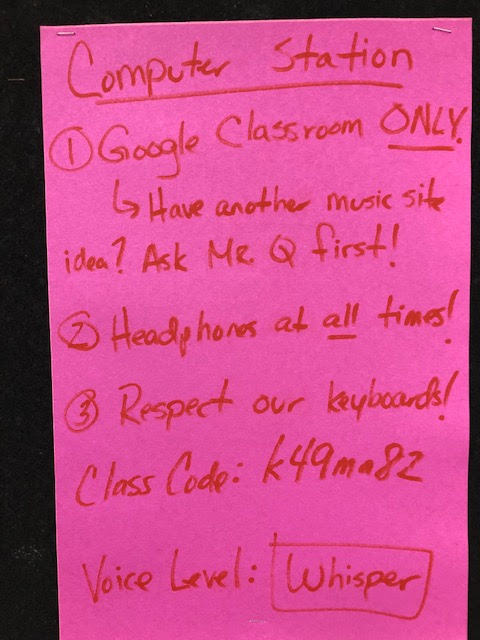 Computer Station
① Google Classroom ONLY.
↳ Have another music site
idea? Ask Mr. Q first!
② Headphones at all times!
③ Respect our keyboards!
Class Code: k49ma82
Voice Level: Whisper